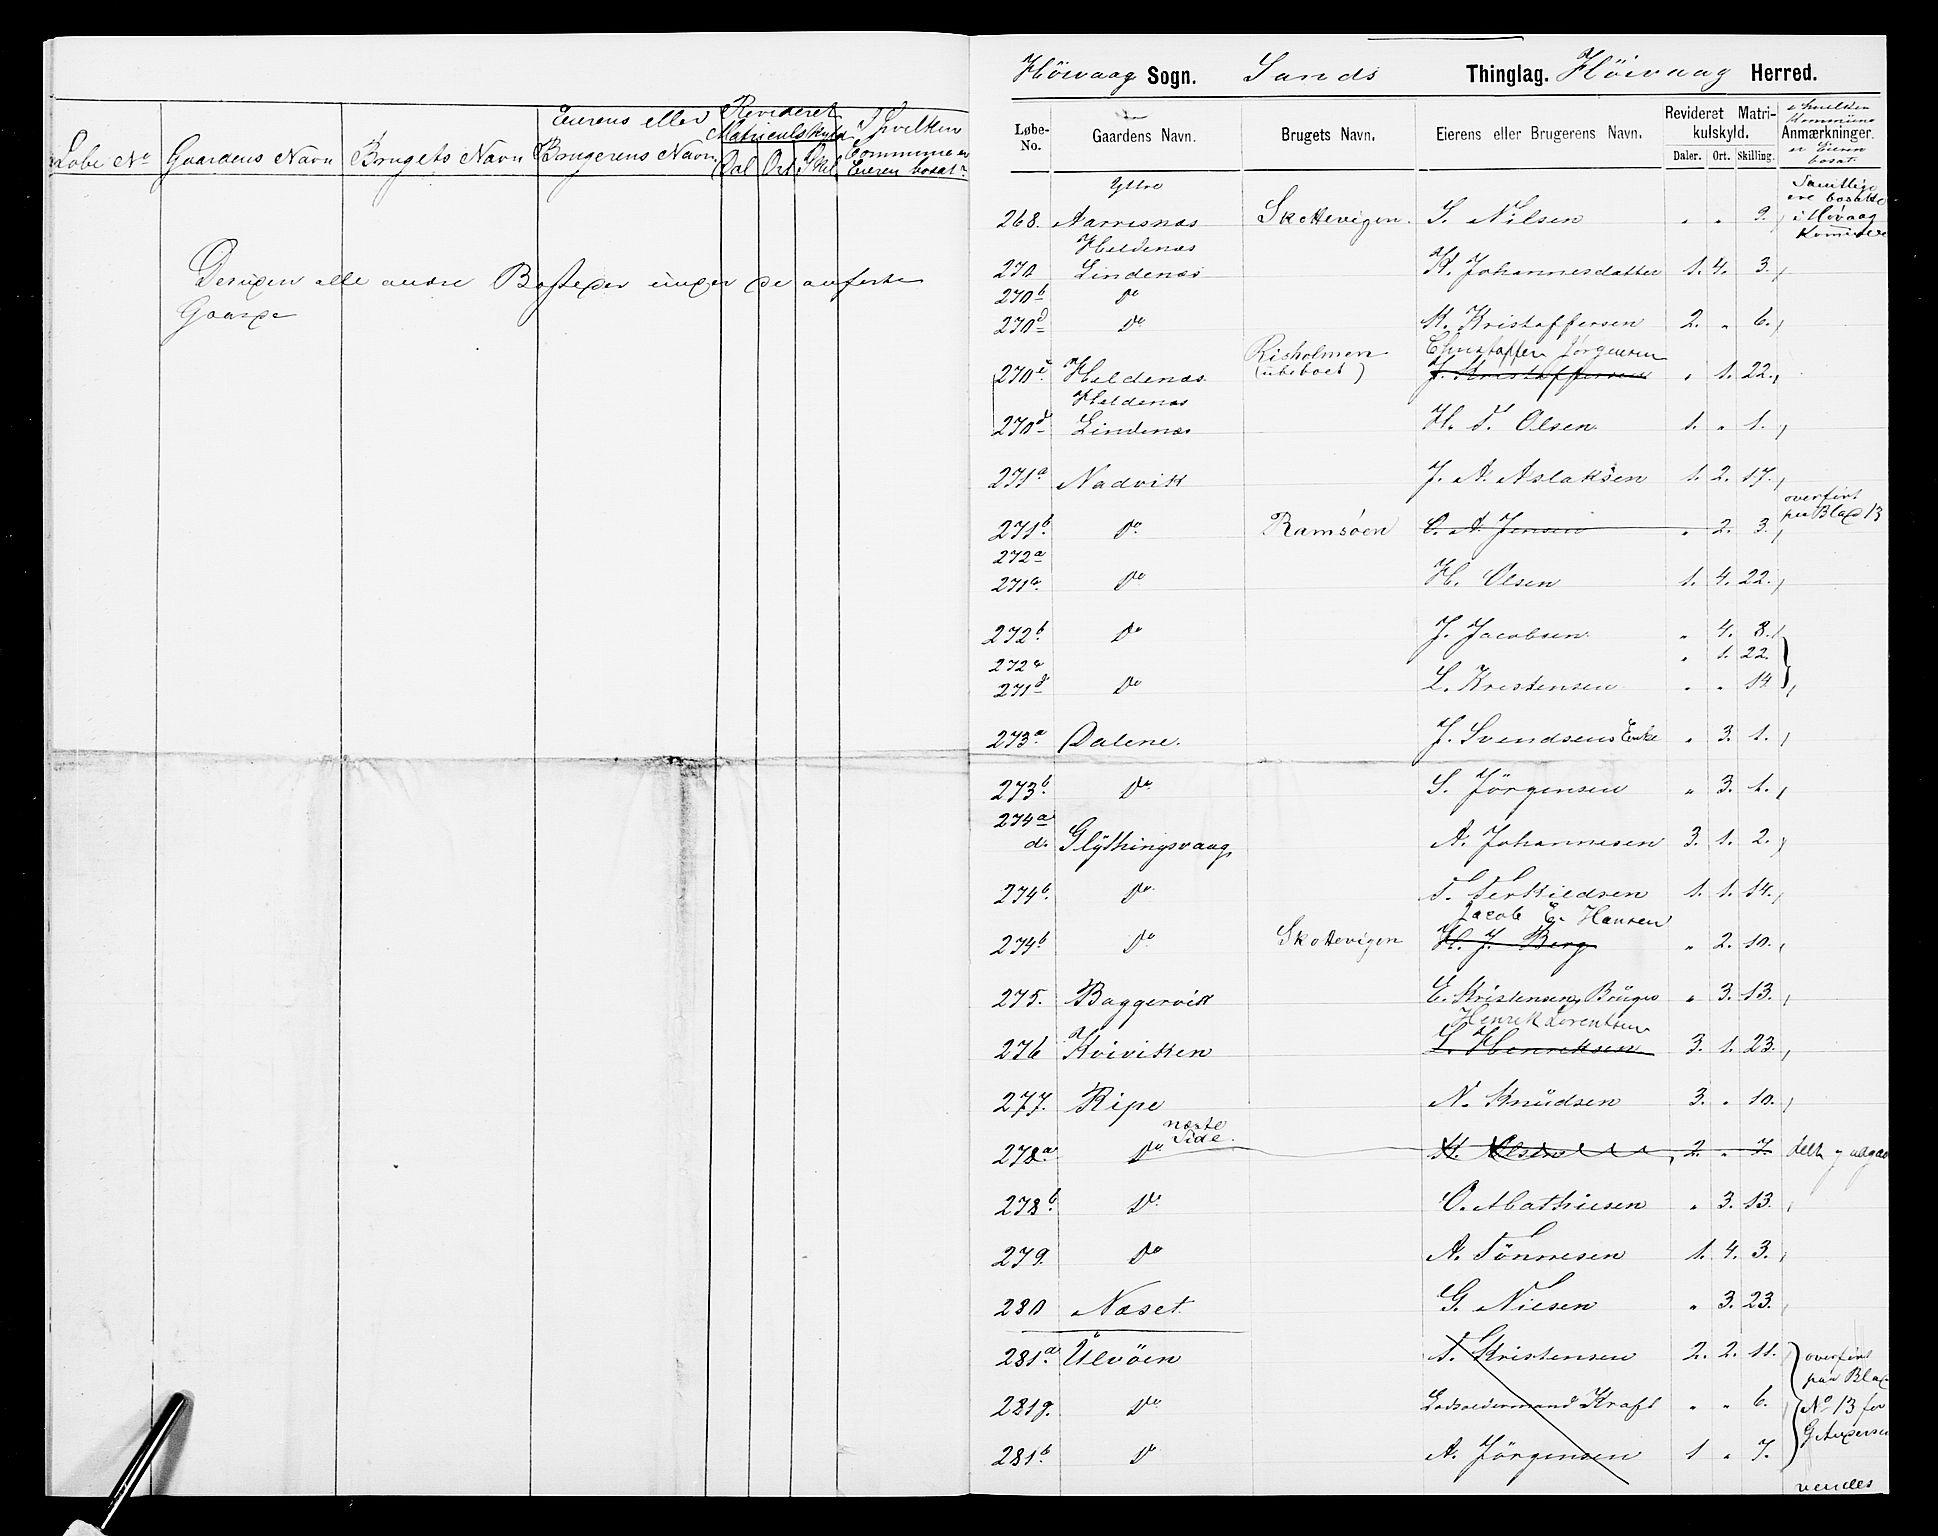 Løbe No Gaardens Navn Brugets Navn Eierens eller Brugerens Navn Revideret Matriculskyld Dal Ort Skil I hvilken Commune er Eieren bosat
Desuden alle andre Bosteder under de anførte
Gaarde
Höivaag Sogn. Sands Thinglag. Höivaag Herred.
Løbe-No. Gaardens Navn. Brugets Navn. Eierens eller Brugerens Navn. Revideret Matrikulskyld. Daler. Ort. Skilling. Anmærkninger. i hvilken Kommune er Eieren bosat.
Ytre
268. Aarresnæs Skottevigen. T. Nilsen " " 9. Samtlige ere bosatte i Høvaag Kommune
Heldenæs
270 Lindenæs K. Johannesdatter 1. 4. 3.
270b Do
270d Do K. Kristoffersen 2. " 6.
Risholmen Christoffer Jørgensen
270e. Heldenæs (ubeboet) J. Kristoffersen " 1. 22.
Heldenæs
270d Lindenæs H. T. Olsen 1. " 1.
271a Nadvik J. A. Aslaksen 1. 2. 17.
271b. Do Ramsöen C. A. Jensen " 2. 3. overført paa Blad 13
272a
271a. Do H. Olsen 1. 4. 22.
272b Do J. Jacobsen " 4. 8.
272a " 1. 22.
271d Do L. Kristensen " " 14
273a. Dalene. J. Svendsens Enke " 3. 1.
273b. Do S. Jörgensen " 3. 1.
274a
d. Glythingsvaag A. Johannesen 3. 1. 2.
274b. Do T. Terkildsen 1. 1. 14.
Jacob E. Hansen
274b. Do Skottevigen H. J. Berg " 2. 10.
275. Baggervik E. Kristensen, Brüger " 3. 13.
Henrik Lorentsen
276 Kvivikken L. Henriksen 3. 1. 23.
277. Ripe N. Knüdsen 3. " 10.
næste
278a Do Side. K. Olsen 2. " 7. delt og
278b. Do O. Mathiesen " 3. 13.
279. Do A. Tönnesen 1. 4. 3.
280 Næset G. Nilsen " 3. 23.
281a. Ulvöen T. Kristensen 2. 2. 11. overført paa Blad
281g. Do Lodsoldermand Kraft " " 6. No 13 for
281b. Do A. Jörgensen 1 " 7. G Andersen
vendes